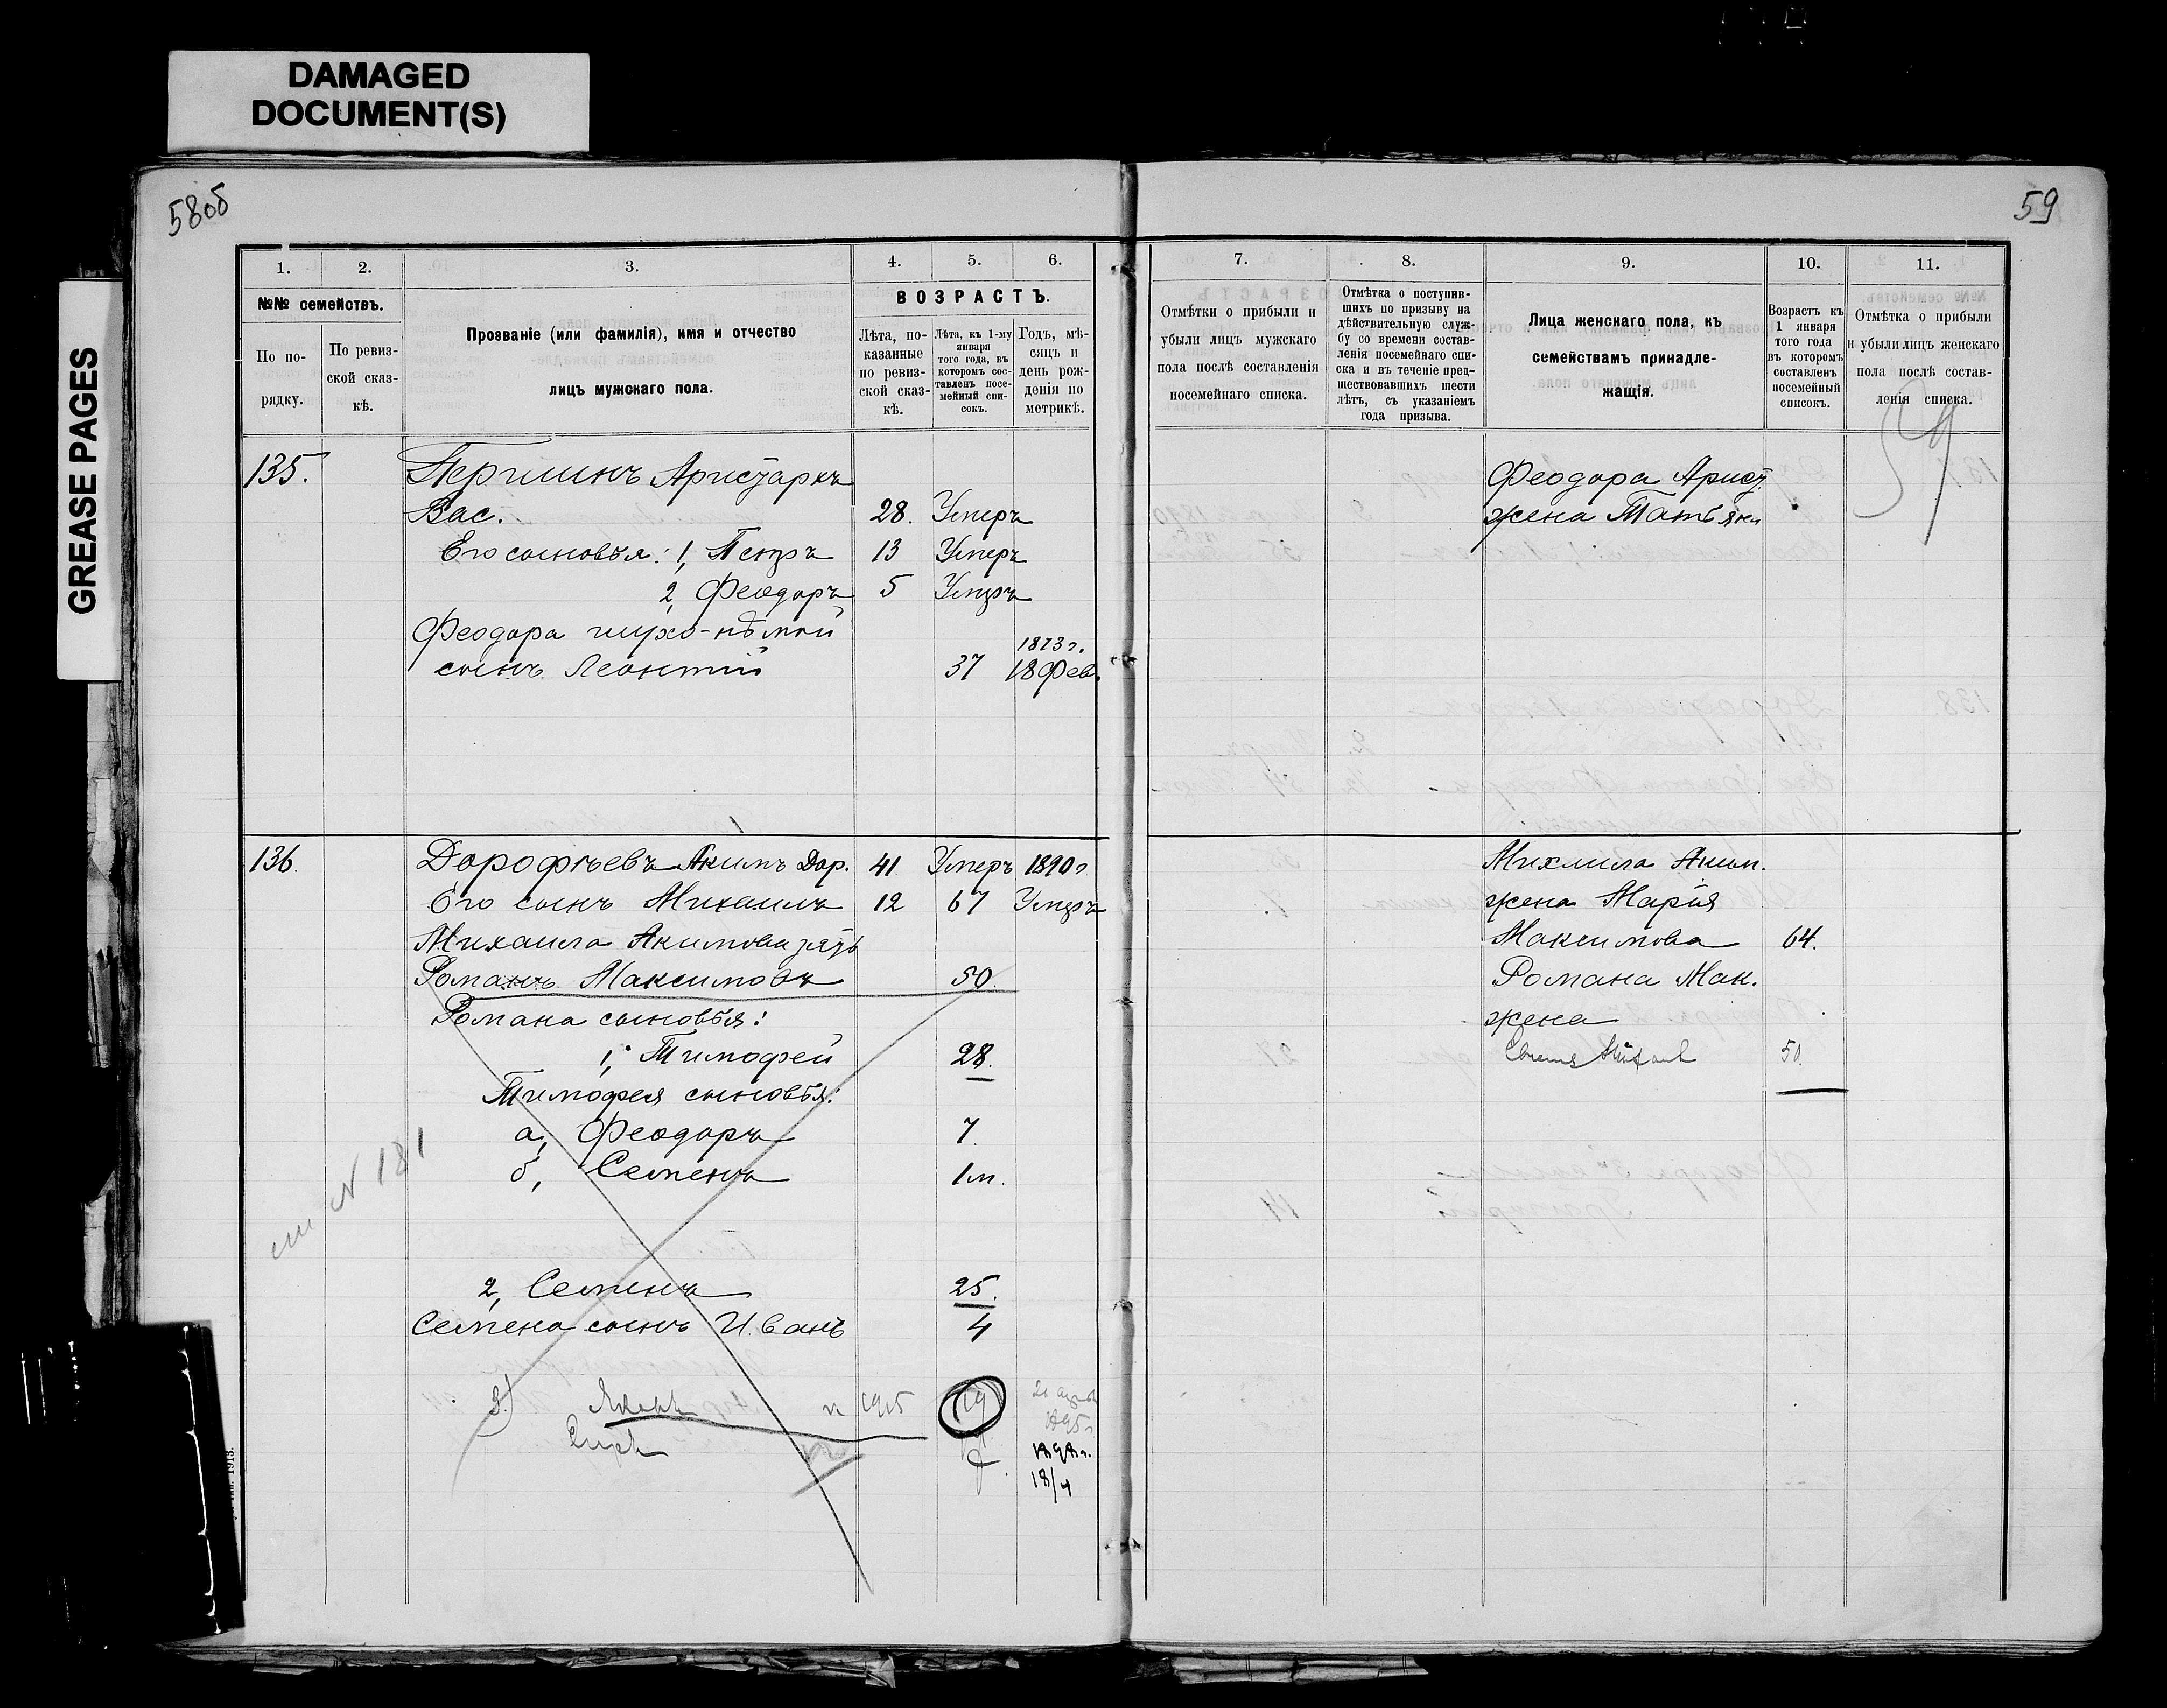 DAMAGED
DOCUMENT(S)
GREASE PAGES
58об
59
1.
2.
3.
4.
5.
6.
№№ семействъ.
По по-
рядку.
По ревиз-
ской сказ-
кѣ.
Прозваніе (или фамилія), имя и отчество
лицъ мужскаго пола.
ВОЗРАСТЪ.
Лѣта, по-
казанные
по ревиз-
ской сказ-
кѣ.
Лѣта, къ 1-му
января
того года, въ
которомъ сос-
тавленъ посе-
мейный спи-
сокъ.
Годъ, мѣ-
сяцъ и
день рож-
денія по
метрикѣ.
7.
8.
9.
10.
11.
Отмѣтки о прибыли и
убыли лицъ мужскаго
пола послѣ составленія
посемейнаго списка.
Отмѣтка о поступив-
шихъ по призыву на
дѣйствительную служ-
бу со времени состав-
ленія посемейнаго спи-
ска и въ теченіе пред-
шествовавшихъ шести
лѣтъ, съ указаніемъ
года призыва.
Лица женскаго пола, къ
семействамъ принадле-
жащія.
Возрастъ къ
1 января
того года
въ которомъ
составленъ
посемейный
списокъ.
Отмѣтка о прибыли
и убыли лицъ женскаго
пола послѣ состав-
ленія списка.
59
135. Першинъ Аристархъ
Вас. 28. Умеръ
Его сыновья: 1, Петръ 13 Умеръ
2, Феодоръ 5 Умеръ
Феодора глухо-нѣмой
1873 г.
сынъ Леонтій 37 18 Фев.
Феодора Арист.
жена Татьяна
136. Дорофѣевъ Акимъ Дор. 41 Умеръ 1890 г
Его сынъ Михаилъ 12 67 Умеръ
Михаила Акимова зять
Романъ Максимовъ 50.
Романа сыновья:
1, Тимофей 28.
Тимофея сыновья:
а, Феодоръ 7.
б, Семенъ 1 м.
N 181
2, Семенъ 25.
Семена сынъ Иванъ 4
3) Яковъ 1915 19
1895 г
1898 г.
18/4
Михаила Аким.
жена Марія
Максимова 64.
Романа Мак.
жена
50.